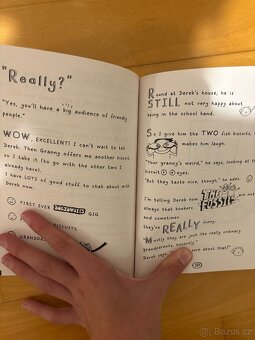 "Really?"
"Yes, you'll have a big audience of friendly
people."
WOW, EXCELLENT! I can't wait to tell
Derek. Then Granny offers me another biscuit,
so I take it (to go with the other two I
already have).
I have LOTS of good stuff to chat about with
Derek now.
FIRST EVER DOGZOMBIES GIG
BISCUITS
Round at Derek's house, he is
STILL not very happy about
being in the school band.
So I give him the TWO fish biscuits,
makes him laugh.
"Your granny's weird," he says, looking at
biscuit
"But they taste nice, though," he adds.
I'm telling Derek how THE FOSSILS
always that bonkers
and sometimes
they're REALLY funny.
"Mostly they are just like really ordinary
grandparents, honestly."
Derek says, sure about that?"